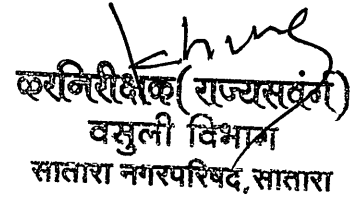 करनिरीक्षक(राज्यसवंर्ग)
वसुली विभाग
सातारा नगरपरिषद, सातारा